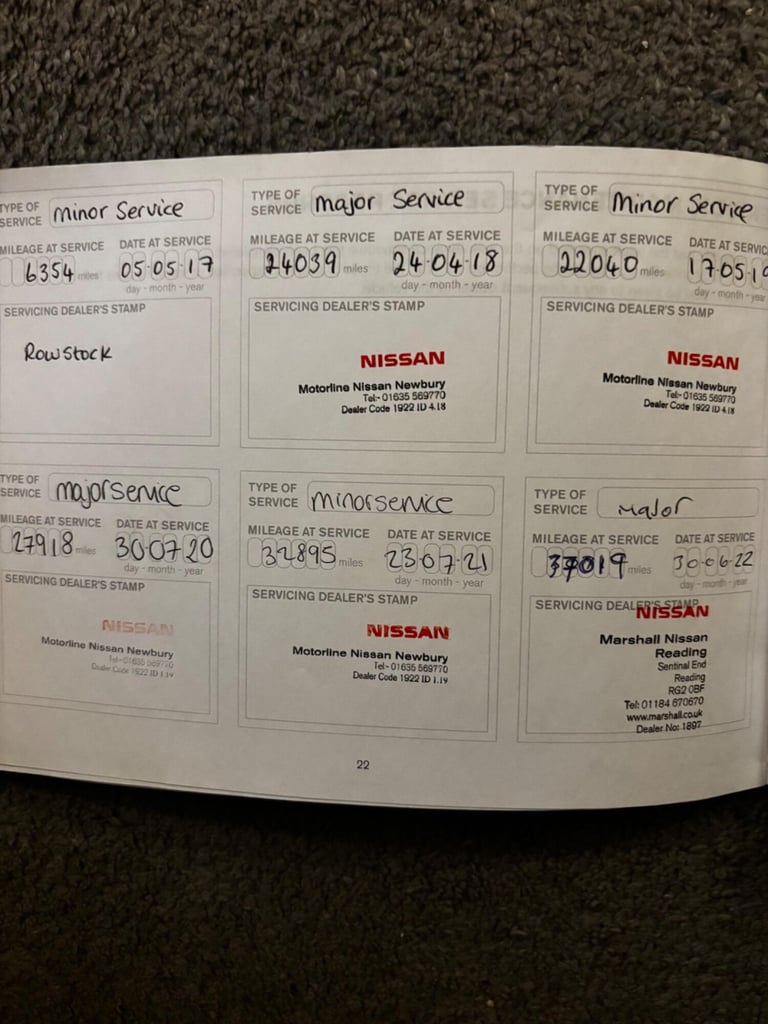 TYPE OF
SERVICE minor Service
MILEAGE AT SERVICE DATE AT SERVICE
6354 miles 05-05-17
day - month - year
SERVICING DEALER'S STAMP
Rowstock
TYPE OF
SERVICE major Service
MILEAGE AT SERVICE DATE AT SERVICE
24039 miles 24-04-18
day - month - year
SERVICING DEALER'S STAMP
NISSAN
Motorline Nissan Newbury
Tel:- 01635 569770
Dealer Code 1922 ID 4.18
TYPE OF
SERVICE Minor Service
MILEAGE AT SERVICE DATE AT SERVIC
22040 miles 17-05-1
day - month - year
SERVICING DEALER'S STAMP
NISSAN
Motorline Nissan Newbury
Tel:- 01635 569770
Dealer Code 1922 ID 4.18
TYPE OF
SERVICE major service
MILEAGE AT SERVICE DATE AT SERVICE
27918 miles 30-07-20
day - month - year
SERVICING DEALER'S STAMP
NISSAN
Motorline Nissan Newbury
Tel:- 01635 569770
Dealer Code 1922 ID 1.19
TYPE OF
SERVICE minor service
MILEAGE AT SERVICE DATE AT SERVICE
32895 miles 23-07-21
day - month - year
SERVICING DEALER'S STAMP
NISSAN
Motorline Nissan Newbury
Tel:- 01635 569770
Dealer Code 1922 ID 1.19
TYPE OF
SERVICE major
MILEAGE AT SERVICE DATE AT SERVICE
37019 miles 30-06-22
day - month - year
SERVICING DEALER'S STAMP
NISSAN
Marshall Nissan
Reading
Sentinal End
Reading
RG2 0BF
Tel: 01184 670670
www.marshall.co.uk
Dealer No: 1897
22